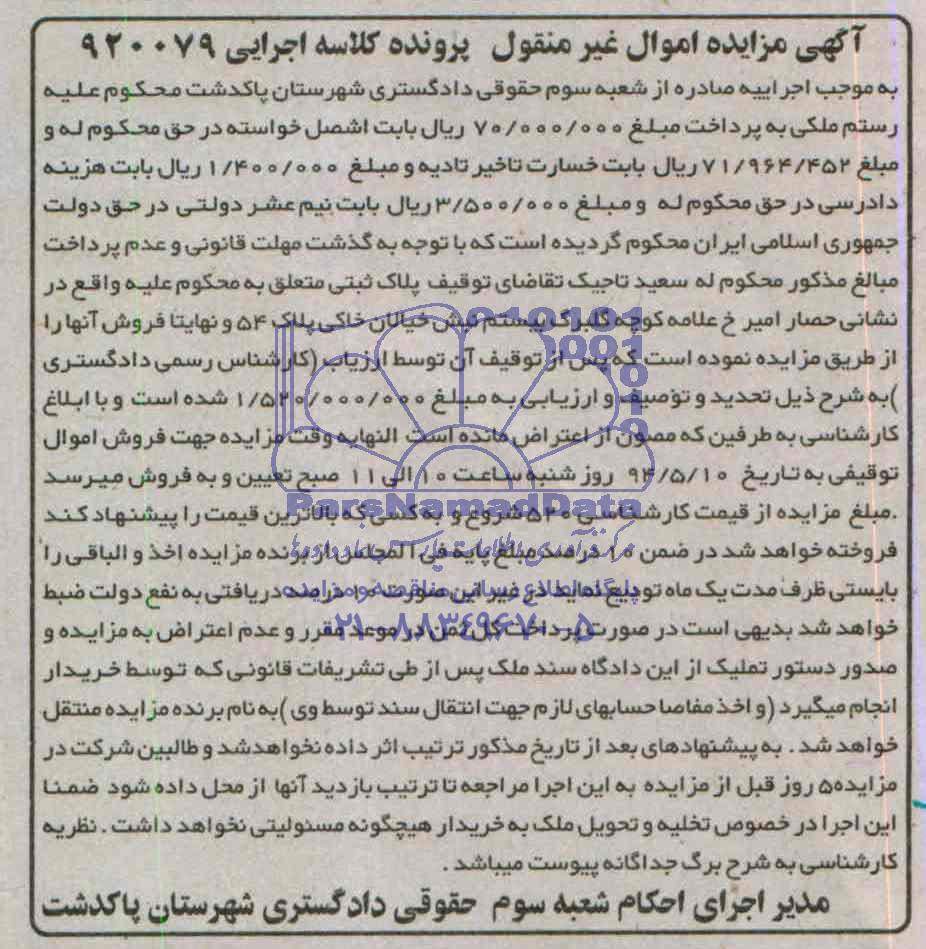 آگهی مزایده اموال غیر منقول پرونده کلاسه اجرایی ۹۲۰۰۷۹
به موجب اجراییه صادره از شعبه سوم حقوقی دادگستری شهرستان پاکدشت محکوم علیه
رستم ملکی به پرداخت مبلغ ۷۰/۰۰۰/۰۰۰ ریال بابت اشصل خواسته در حق محکوم له و
مبلغ ۷۱/۹۶۴/۴۵۲ ریال بابت خسارت تاخیر تادیه و مبلغ ۱/۴۰۰/۰۰۰ ریال بابت هزینه
دادرسی در حق محکوم له و مبلغ ۳/۵۰۰/۰۰۰ ریال بابت نیم عشر دولتی در حق دولت
جمهوری اسلامی ایران محکوم گردیده است که با توجه به گذشت مهلت قانونی و عدم پرداخت
مبالغ مذکور محکوم له سعید تاجیک تقاضای توقیف پلاک ثبتی متعلق به محکوم علیه واقع در
نشانی حصار امیر خ علامه کوچه گلبرگ بیستم نبش خیالان خاکی پلاک ۵۴ و نهایتا فروش آنها را
از طریق مزایده نموده است که پس از توقیف آن توسط ارزیاب (کارشناس رسمی دادگستری
)به شرح ذیل تحدید و توصیف و ارزیابی به مبلغ ۱/۵۲۰/۰۰۰/۰۰۰ شده است و با ابلاغ
کارشناسی به طرفین که مصون از اعتراض مانده است النهایه وقت مزایده جهت فروش اموال
توقیفی به تاریخ ۹۴/۵/۱۰ روز شنبه ساعت ۱۰ الی ۱۱ صبح تعیین و به فروش میرسد
.مبلغ مزایده از قیمت کارشناسی ۵۲۰ شروع و به کسی که بالاترین قیمت را پیشنهاد کند
فروخته خواهد شد در ضمن ۱۰ درصد مبلغ پایه فی المجلس از برنده مزایده اخذ و الباقی را
بایستی ظرف مدت یک ماه تودیع نماید در غیر این صورت ۱۰ درصد دریافتی به نفع دولت ضبط
خواهد شد بدیهی است در صورت پرداخت کل ثمن در موعد مقرر و عدم اعتراض به مزایده و
صدور دستور تملیک از این دادگاه سند ملک پس از طی تشریفات قانونی که توسط خریدار
انجام میگیرد (و اخذ مفاصا حسابهای لازم جهت انتقال سند توسط وی )به نام برنده مزایده منتقل
خواهد شد . به پیشنهادهای بعد از تاریخ مذکور ترتیب اثر داده نخواهدشد و طالبین شرکت در
مزایده۵ روز قبل از مزایده به این اجرا مراجعه تا ترتیب بازدید آنها از محل داده شود ضمنا
این اجرا در خصوص تخلیه و تحویل ملک به خریدار هیچگونه مسئولیتی نخواهد داشت . نظریه
کارشناسی به شرح برگ جداگانه پیوست میباشد .
مدیر اجرای احکام شعبه سوم حقوقی دادگستری شهرستان پاکدشت
ParsNamadData
پایگاه اطلاع رسانی مناقصه و مزایده
۰۲۱-۸۸۳۴۹۶۷۰-۵